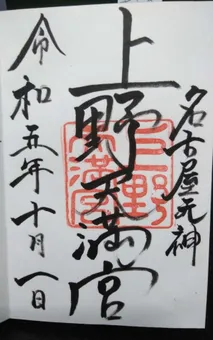 名古屋天神
上野天満宮
令和五年十月一日
上野天満宮